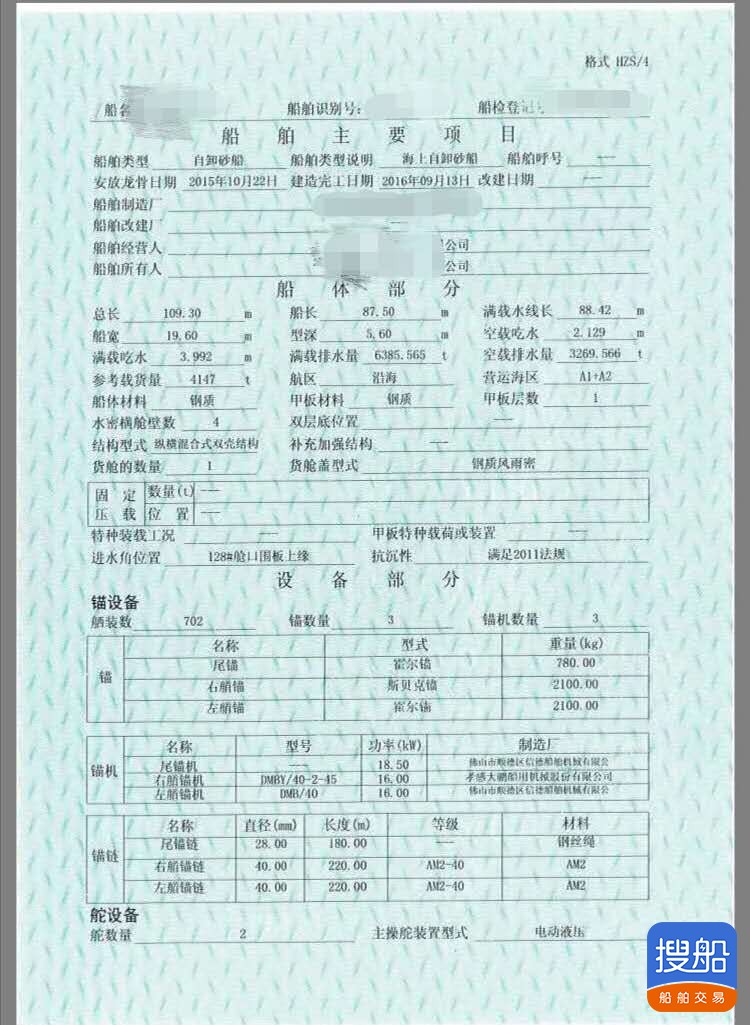 格式 HZS/4
船名 船舶识别号: 船检登记号
船舶主要项目
船舶类型 自卸砂船 船舶类型说明 海上自卸砂船 船舶呼号 ---
安放龙骨日期 2015年10月22日 建造完工日期 2016年09月13日 改建日期 ---
船舶制造厂
船舶改建厂 ---
船舶经营人 公司
船舶所有人 公司
船体部分
总长 109.30 m 船长 87.50 m 满载水线长 88.42 m
船宽 19.60 m 型深 5.60 m 空载吃水 2.129 m
满载吃水 3.992 m 满载排水量 6385.565 t 空载排水量 3269.566 t
参考载货量 4147 t 航区 沿海 营运海区 A1+A2
船体材料 钢质 甲板材料 钢质 甲板层数 1
水密横舱壁数 4 双层底位置 ---
结构型式 纵横混合式双壳结构 补充加强结构 ---
货舱的数量 1 货舱盖型式 钢质风雨密
固定 数量(t) ---
压载 位置 ---
特种装载工况 --- 甲板特种载荷或装置 ---
进水角位置 128#舱口围板上缘 抗沉性 满足2011法规
设备部分
锚设备
舾装数 702 锚数量 3 锚机数量 3
锚 名称 型式 重量(kg)
尾锚 霍尔锚 780.00
右艏锚 斯贝克锚 2100.00
左艏锚 霍尔锚 2100.00
锚机 名称 型号 功率(kW) 制造厂
尾锚机 --- 18.50 佛山市顺德区信德船舶机械有限公
右艏锚机 DMBY/40-2-45 16.00 孝感大鹏船用机械股份有限公司
左艏锚机 DMB/40 16.00 佛山市顺德区信德船舶机械有限公
锚链 名称 直径(mm) 长度(m) 等级 材料
尾锚链 28.00 180.00 --- 钢丝绳
右艏锚链 40.00 220.00 AM2-40 AM2
左艏锚链 40.00 220.00 AM2-40 AM2
舵设备
舵数量 2 主操舵装置型式 电动液压
搜船
船舶交易